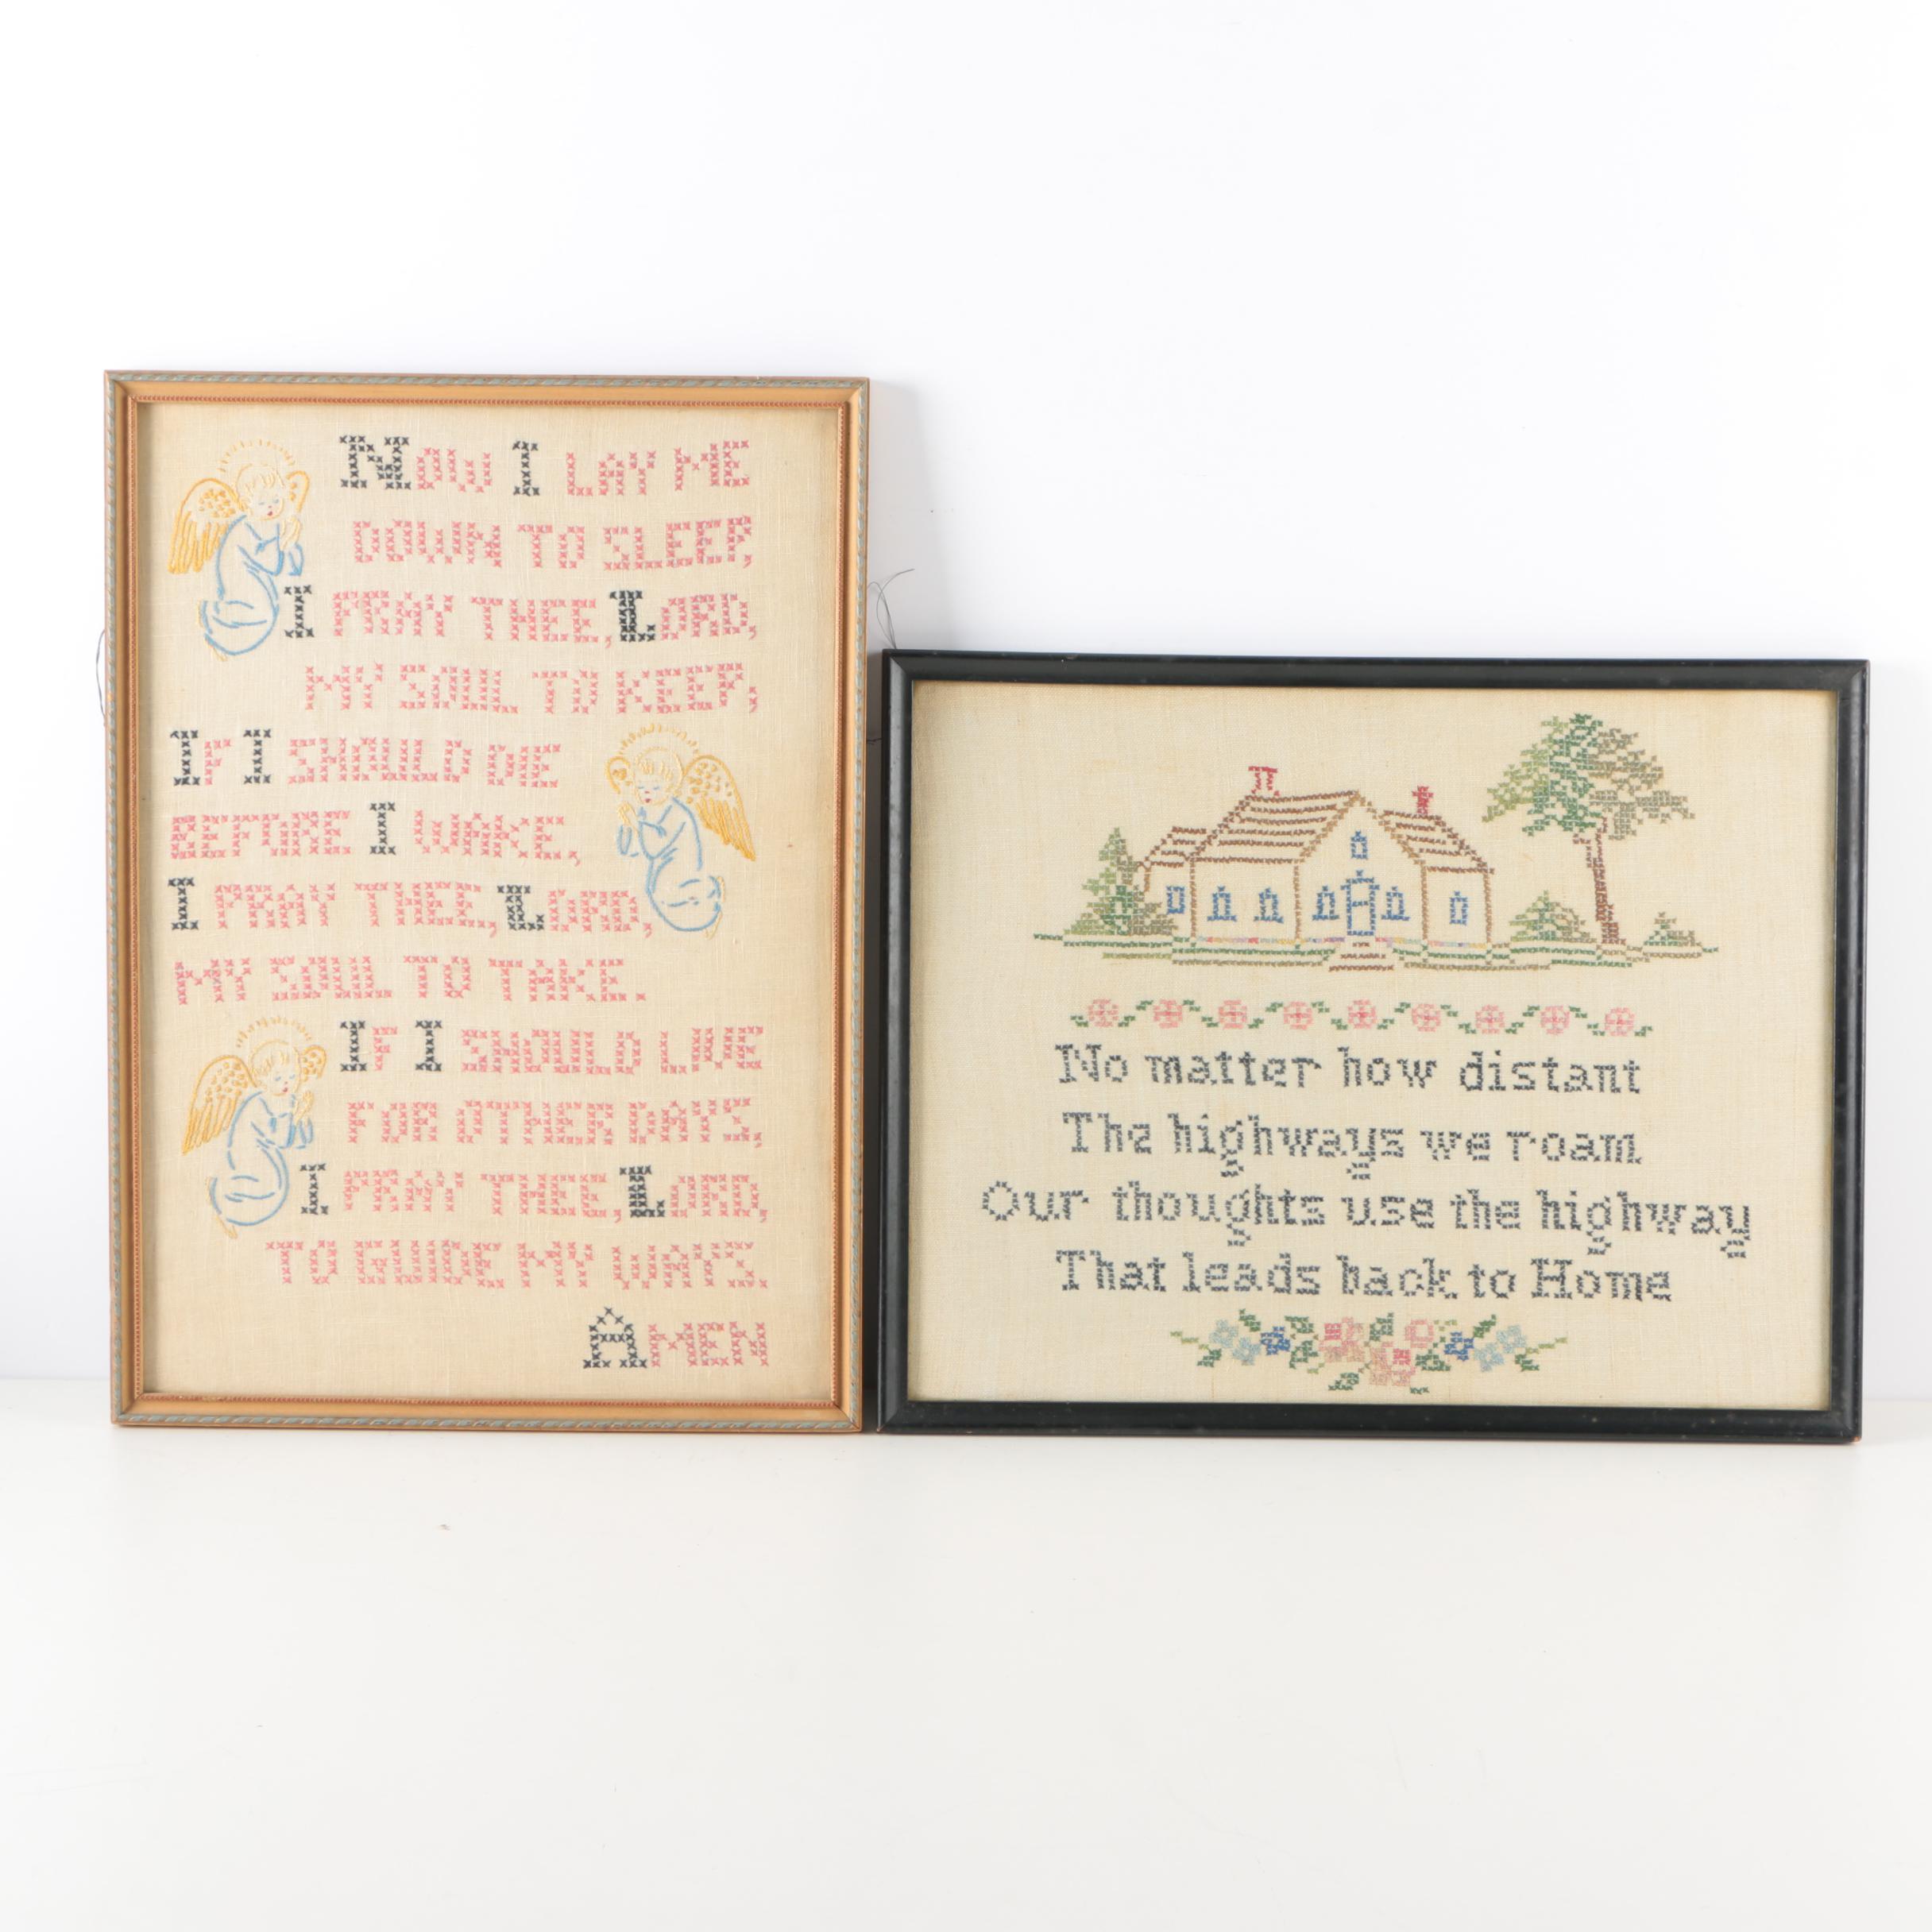 NOW I LAY ME
DOWN TO SLEEP,
I PRAY THEE, LORD,
MY SOUL TO KEEP,
IF I SHOULD DIE
BEFORE I WAKE,
I PRAY THEE, LORD,
MY SOUL TO TAKE.
IF I SHOULD LIVE
FOR OTHER DAYS,
I PRAY THEE, LORD,
TO GUIDE MY WAYS.
AMEN
No matter how distant
The highways we roam
Our thoughts use the highway
That leads back to Home